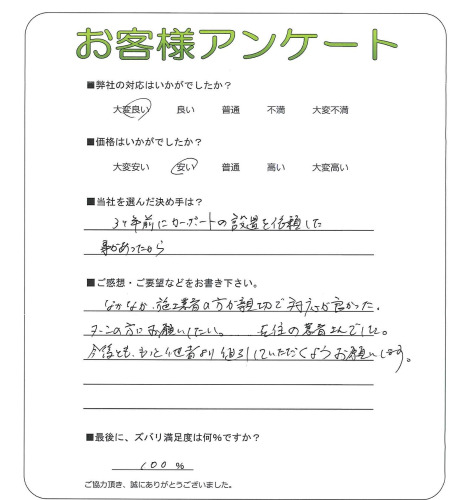 お客様アンケート
■弊社の対応はいかがでしたか?
大変良い 良い 普通 不満 大変不満
■価格はいかがでしたか?
大変安い 安い 普通 高い 大変高い
■当社を選んだ決め手は?
3ヶ年前にカーポートの設置を依頼した
事があったから
■ご感想・ご要望などをお書き下さい。
なかなか、施工業者の方が親切で対応が良かった。
の方にお願いしたい。 在住の業者さんでした。
今後とも、もっと他者より値引していただくようお願いします。
■最後に、ズバリ満足度は何%ですか?
100%
ご協力頂き、誠にありがとうございました。